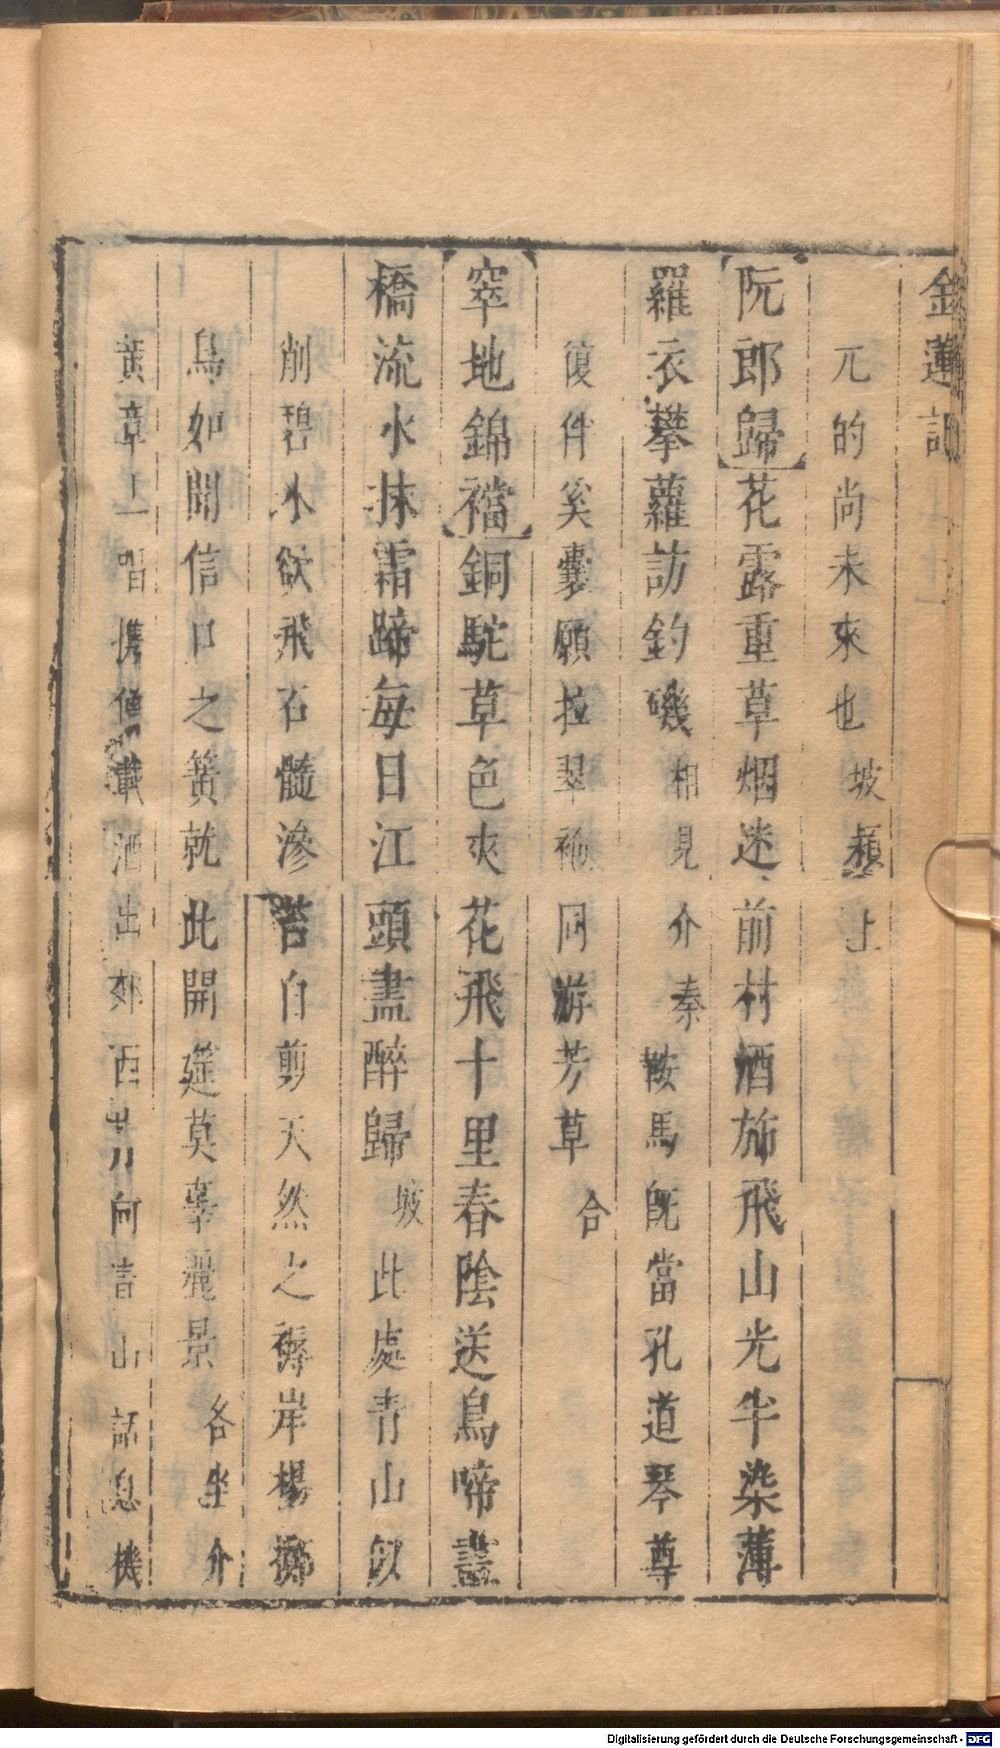 金蓮記
兀的尚未來也坡頴上
阮郎歸花露重草烟迷前村酒斾飛山光半染薄
羅衣攀蘿訪釣磯相見介秦鞍馬旣當孔道琴尊
復伴奚囊願拉翠袖同游芳草合
窣地錦襠銅駝草色夾花飛十里春陰送鳥啼畫
橋流水抹霜蹄每日江頭盡醉歸坡此處靑山似
削碧水欲飛石髓滲苔自剪天然之褥岸楊擲
鳥如聞信口之簧就此開筵莫辜麗景各坐介
黃章 唱携僧載酒出郊西 向靑山話息機
Digitalisierung gefördert durch die Deutsche Forschungsgemeinschaft - DFG